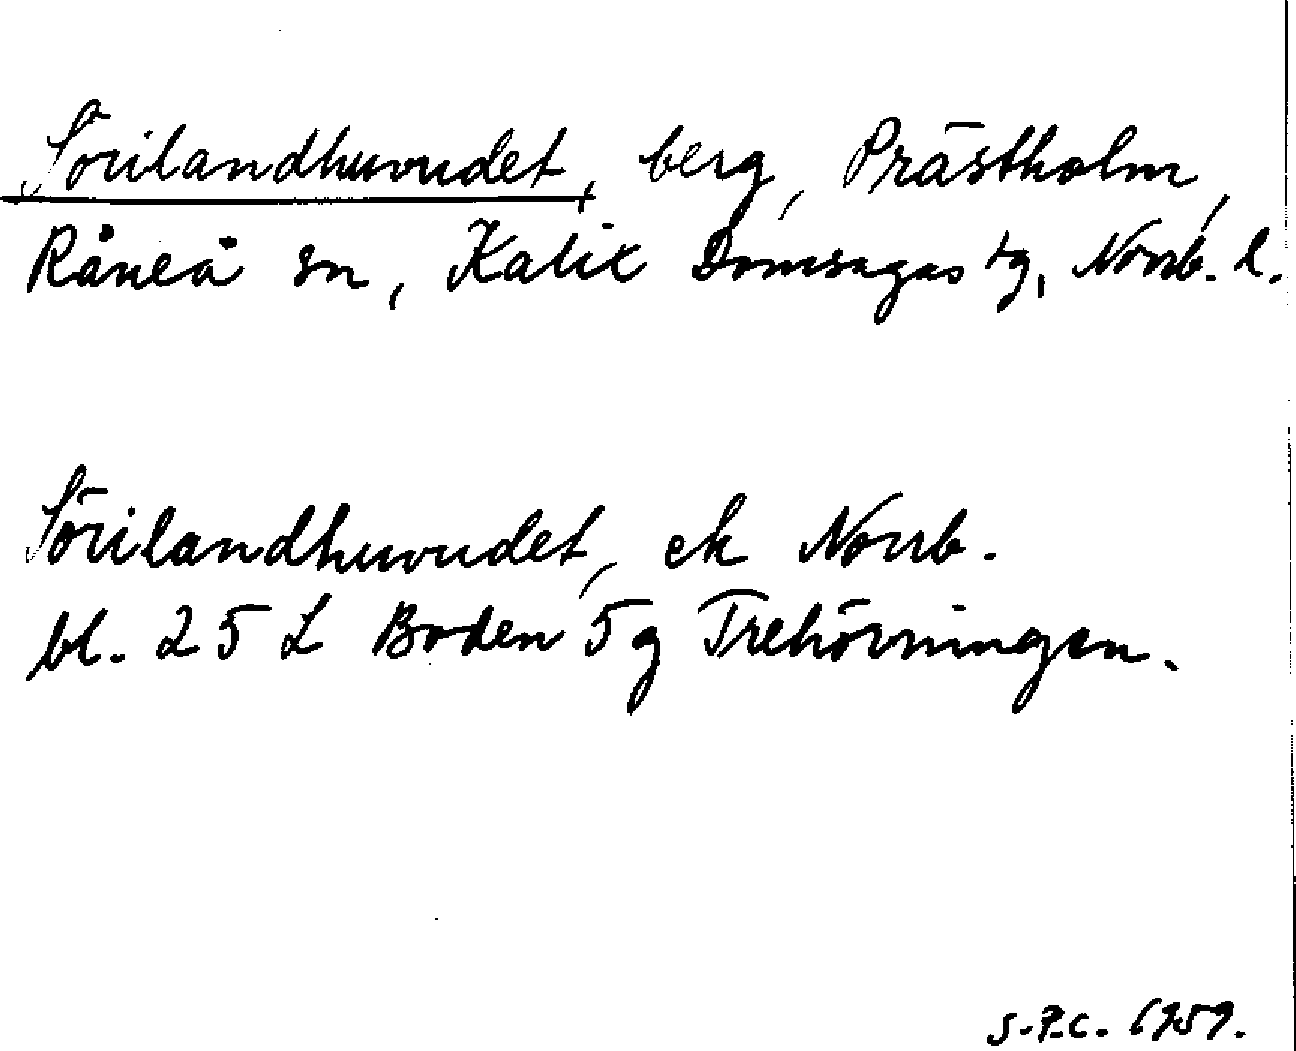 Sörilandhuvudet, berg, Prästholm,
Råneå sn, Kalix Domsagas tg, Norrb. l.
Sörilandhuvudet, ek Norrb.
bl. 25 L Boden 5g Trehörningen.
S.P.C. 1959.